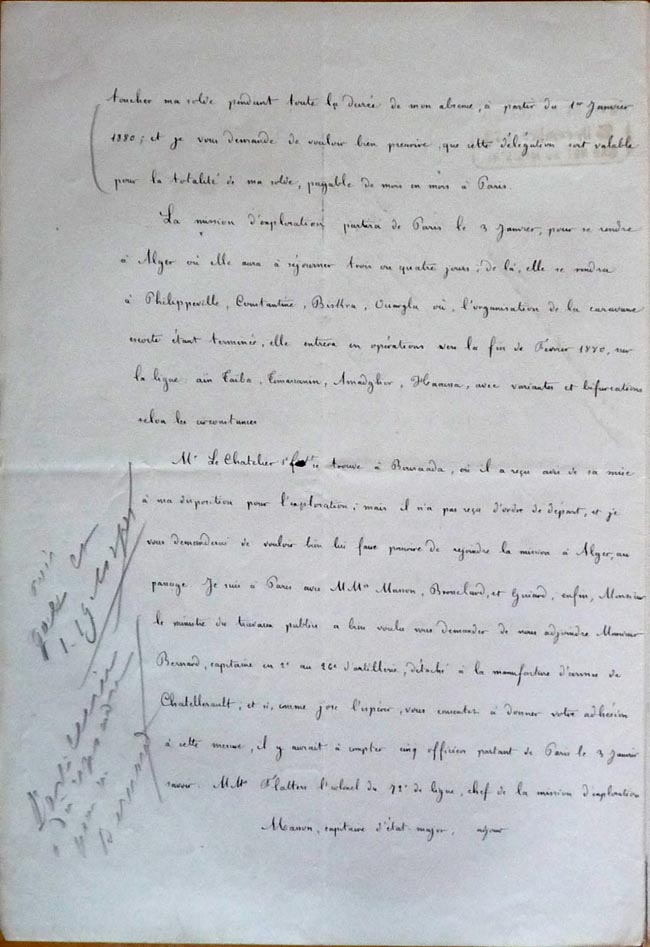 toucher ma solde pendant toute la durée de mon absence, à partir du 1er Janvier
1880; et je vous demande de vouloir bien prescrire, que cette délégation soit valable
pour la totalité de ma solde, payable de mois en mois à Paris.
La mission d'exploration partira de Paris le 3 Janvier, pour se rendre
à Alger où elle aura à séjourner trois ou quatre jours; de là, elle se rendra
à Philippeville, Constantine, Biskra, Ouargla où, l'organisation de la caravane
escorte étant terminée, elle entrera en opérations vers la fin de Février 1880, sur
la ligne: aïn Taïba, Timassanin, Amadghor, Haaussa, avec variantes et bifurcations
selon les circonstances
Mr Le Chatelier se trouve à Boussaada, où il a reçu avis de sa mise
à ma disposition pour l'exploration; mais il n'a pas reçu d'ordre de départ, et je
vous demanderai de vouloir bien lui faire prescrire de rejoindre la mission à Alger, au
passage. Je suis à Paris avec MMrs Masson, Brosselard, et Guiard, enfin, Monsieur
le ministre des travaux publics a bien voulu vous demander de nous adjoindre Monsieur
Bernard, capitaine en 2e au 26e d'artillerie, détaché à la manufacture d'armes de
Chatellerault; et si, comme j'ose l'espérer, vous consentez à donner votre adhésion
à cette mesure, il y aurait à compter cinq officiers partant de Paris le 3 Janvier
savoir: MMrs Flatters lt colonel du 72e de ligne, chef de la mission d'exploration
Masson, capitaine d'état-major,
avis
19 corps
L'artillerie
Bernard